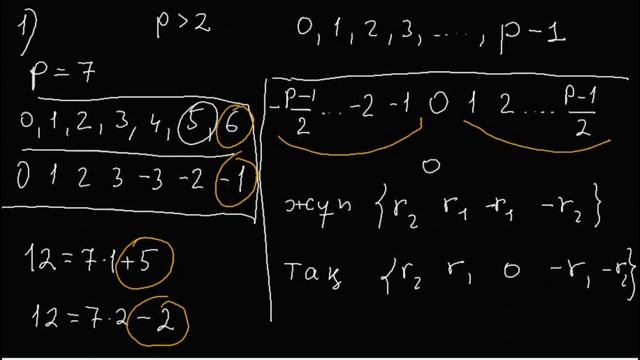 1) p > 2 0, 1, 2, 3, ...., p-1
p = 7
0, 1, 2, 3, 4, 5, 6
0 1 2 3 -3 -2 -1
12 = 7·1+5
12 = 7·2-2
-p-1/2 ... -2 -1 0 1 2 .... p-1/2
0
жуп {r₂ r₁ -r₁ -r₂}
так {r₂ r₁ 0 -r₁ -r₂}